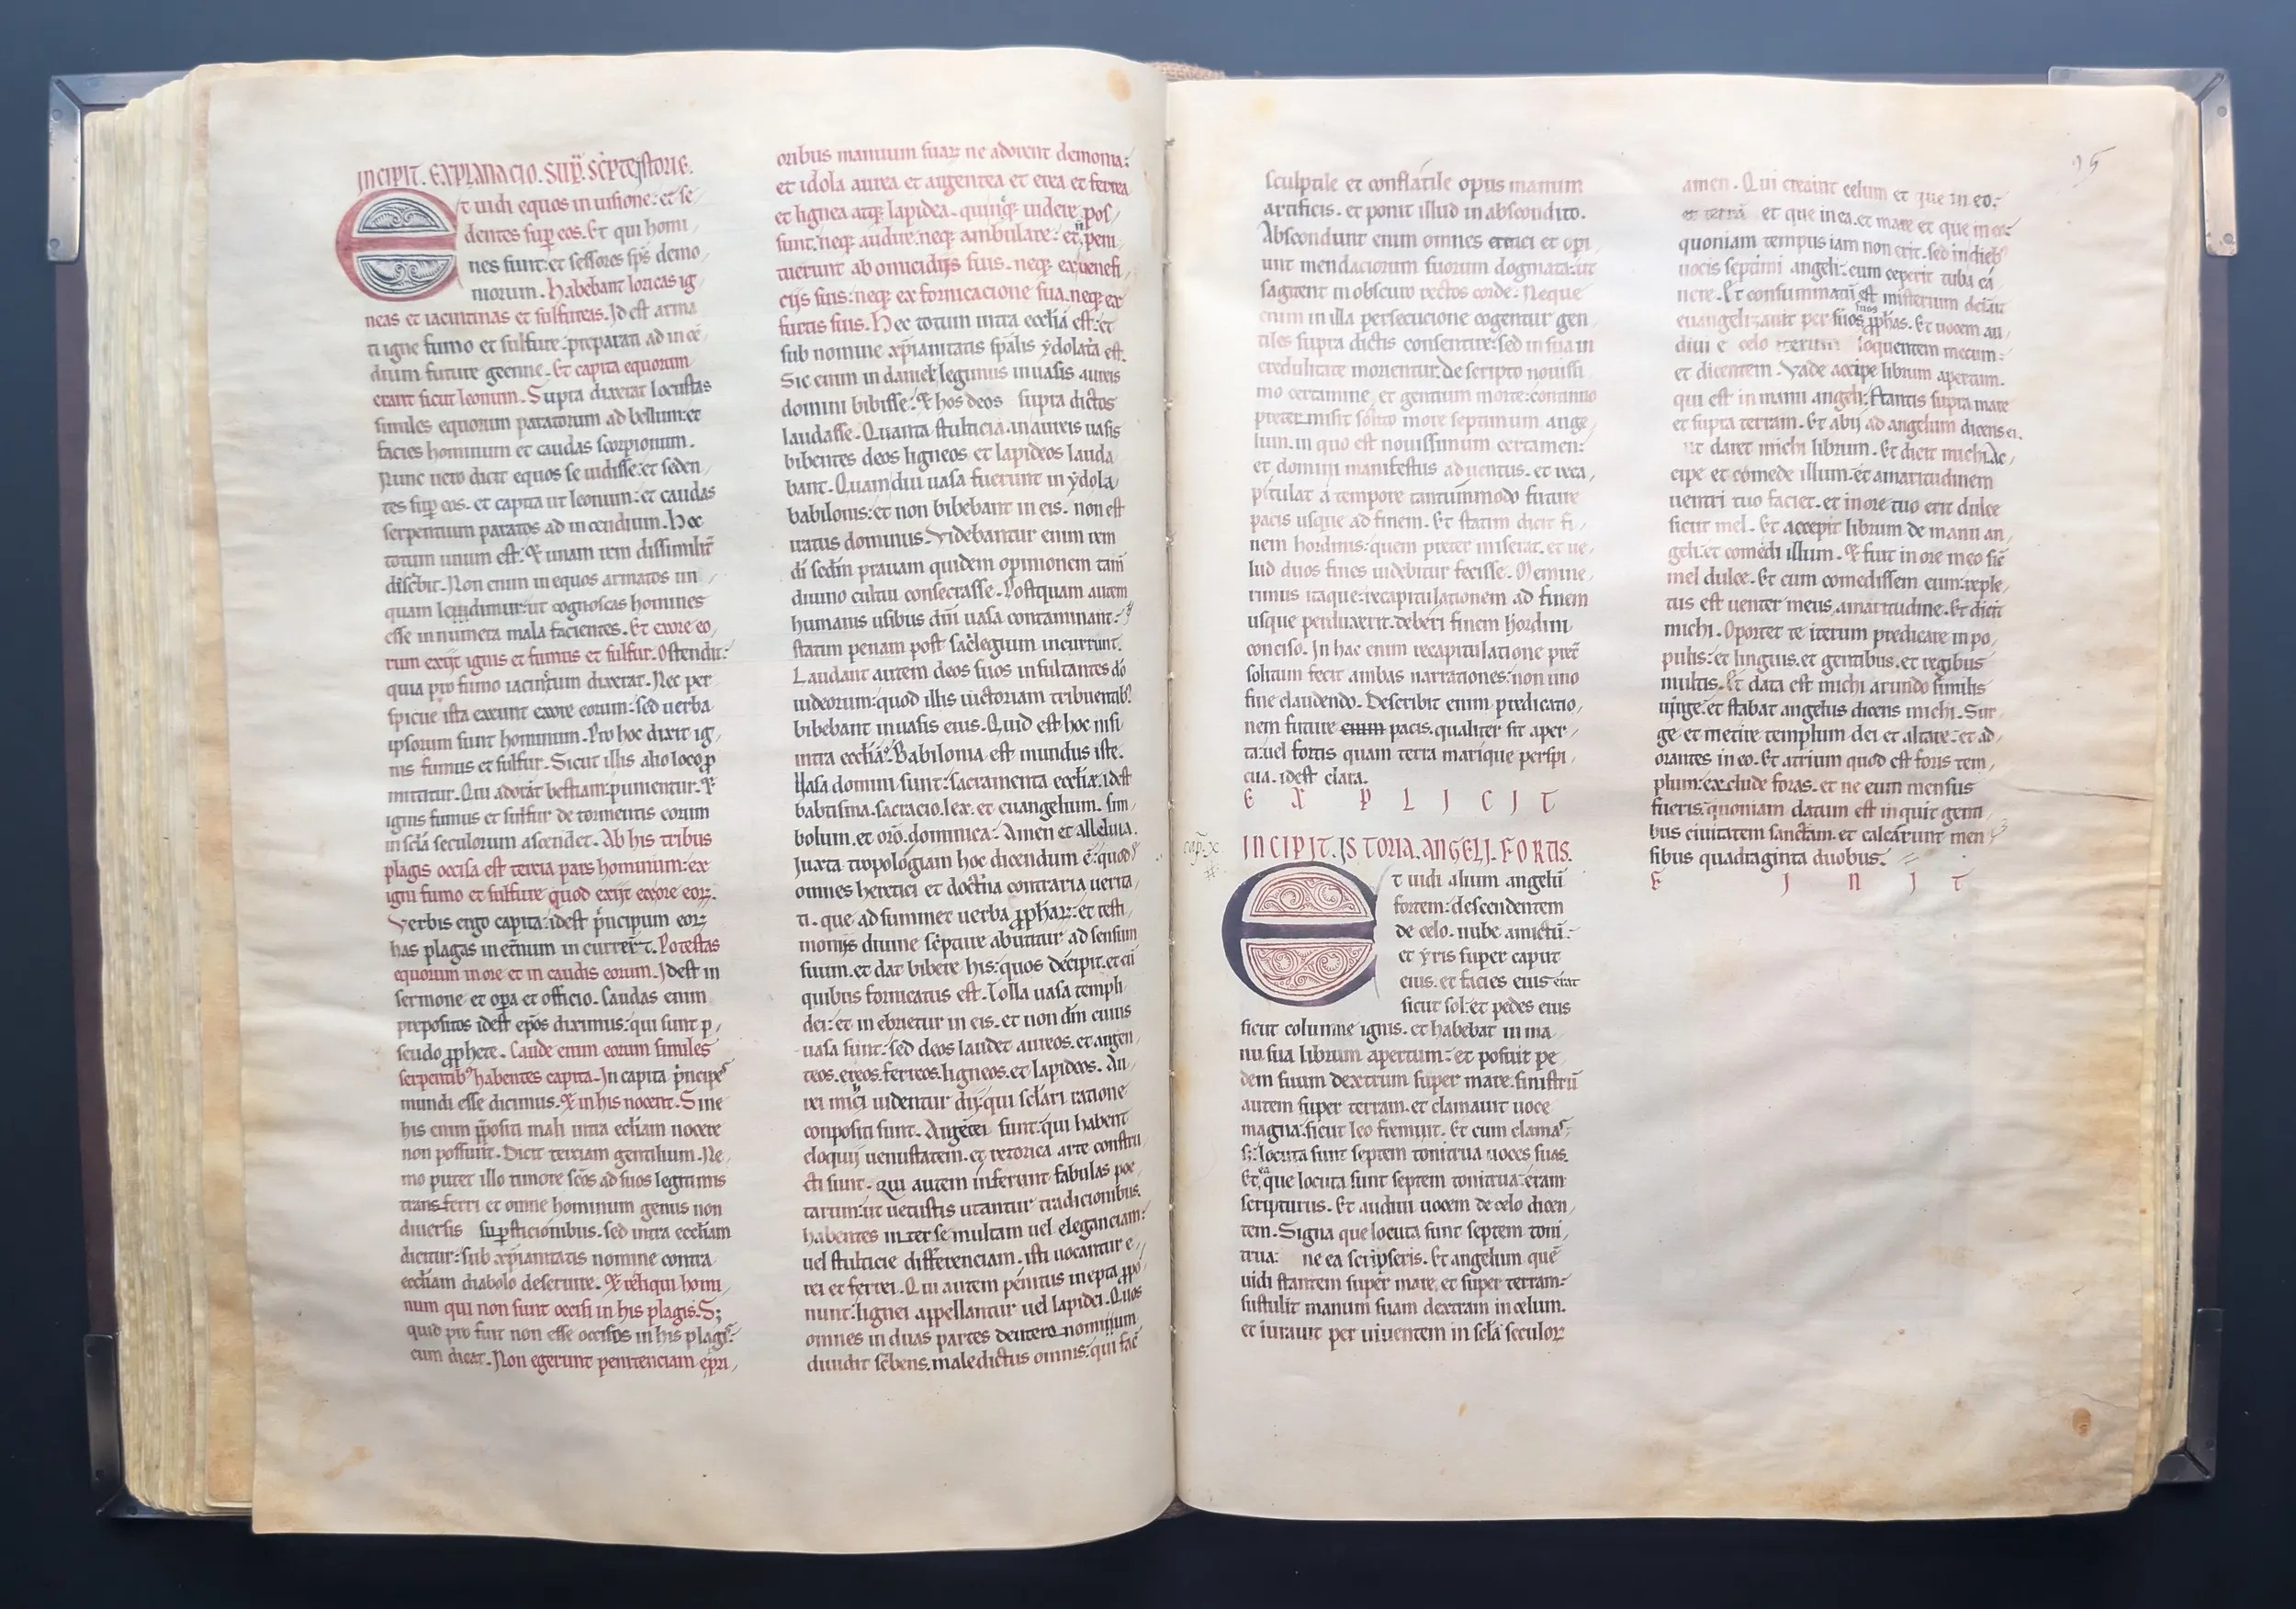 INCIPIT. EXPLANACIO. SUP̄. SC̄PTE ISTORIE.
Et uidi equos in uisione: et se
dentes sup eos. Et qui homi
nes sunt: et sessores sp̄s demo
niorum. Habebant loricas ig
neas et iacintinas et sulfureas. Id est arma
ti igne fumo et sulfure: preparati ad incē
dium future geenne. Et capita equorum
erant sicut leonum. Supra dixerat locustas
similes equorum paratorum ad bellum: et
facies hominum et caudas scorpionum.
Nunc uero dicit equos se uidisse: et seden
tes sup eos. et capita ut leonum: et caudas
serpentium paratos ad incendium. Hoc
totum unum est: & unam rem dissimilit̄
discbit. Non enim in equos armatos un
quam incidimur: ut cognoscas homines
esse innumera mala facientes. Et exore eo
rum exijt ignis et fumus et sulfur. Ostendit:
quia pro fumo iacinctum dixerat. Nec per
spicue ista exeunt exore eorum: sed uerba
ipsorum sunt hominum. Pro hoc dixit ig
nis fumus et sulfur. Sicut illis alio loco p
mittitur. Qui adorāt bestiam: punientur. &
ignis fumus et sulfur de tormentis eorum
in sclā seculorum ascendet. Ab his tribus
plagis occisa est tercia pars hominum: ex
igni fumo et sulfure quod exijt exore eorꝝ.
Verbis ergo capita: idest p̄ncipum eorꝝ
has plagas in et̄num in current. Potestas
equorum inore et in caudis eorum. Idest in
sermone et opa et officio. Caudas enim
prepositos idest ep̄os diximus: qui sunt p
seudo pphete. Caude enim eorum similes
serpentib⁹ habentes capita. In capita p̄ncipes
mundi esse dicimus. & in his nocent. Sine
his enim p̄positi mali intra eccliam nocere
non possunt. Dicit terciam gentilium. Ne
mo putet illo timore sc̄os ad suos legitimis
trans ferri et omne hominum genus non
diuersis supsticionibus. sed intra eccliam
dicitur: sub xp̄ianitatis nomine contra
eccliam diabolo deseruire. & reliqui homi
num qui non sunt occisi in his plagis. S;
quid pro fuit non esse occisos in his plagis:
cum dicat. Non egerunt penitenciam ep̄ri
oribus manuum suarꝝ ne adorent demonia:
et idola aurea et argentea et erea et ferrea
et lignea atqꝫ lapidea. quineqꝫ uidere pos
sunt: neqꝫ audire: neqꝫ ambulare: et n̄ peni
tuerunt ab omicidijs suis. neqꝫ ex uenefi
cijs suis: neqꝫ ex fornicacione sua. neqꝫ ex
furtis suis. Hec totum intra eccliā est: et
sub nomine xp̄ianitatis sp̄alis ydolatria est.
Sic enim in daniel legimus inuasis aureis
domini bibisse: & hos deos supra dictos
laudasse. Quanta stulticia. inaureis uasis
bibentes deos ligneos et lapideos lauda
bant. Quamdiu uasa fuerunt in ydola
babilonis: et non bibebant in eis. non est
iratus dominus. Videbantur enim rem
di sedm̄ prauam quidem opinionem tam̄
diuino cultui consecrasse. Postquam autem
humanis usibus dn̄i uasa contaminant:
statim penam post sac̄legium incurrunt.
Laudant autem deos suos insultantes dō
iudeorum: quod illis uictoriam tribuentib⁹
bibebant inuasis eius. Quid est hoc nisi
intra eccliā? Babilonia est mundus iste.
Uasa domini sunt: sacramenta eccliæ. idest
babtisma. sacracio. lex. et euangelium. sim
bolum. et orō. dominica. Amen et alleluia.
Juxta tropologiam hoc dicendum ē: quod
omnes heretici et doct̄na contraria uerita
ti. que ad sumunt uerba pphetarꝝ: et testi
monijs diuine sc̄pture abutitur ad sensum
suum. et dat bibere his: quos decipit. et cū
quibus fornicatus est. Tolla uasa templi
dei: et in ebrietur in eis. et non dn̄i cuius
uasa sunt: sed deos laudet aureos. et argen
teos. ereos. ferreos. ligneos. et lapideos. Au
rei mic̄i uidentur dij: qui sclāri ratione
conpositi sunt. Argētei sunt: qui habent
eloquij uenustatem. et retorica arte constru
cti sunt. Qui autem inferunt fabulas poe
tarum: ut uetustis utantur tradicionibus.
habentes in ter se multam uel eleganciam:
uel stulticie differenciam. isti uocantur e
rei et ferrei. Qui autem penitus inepta ppo
nunt: lignei appellantur uel lapidei. Quos
omnes in duas partes deutero nomium
diuidit sc̄bens. maledictus omnis: qui faē
sculptile et conflatile opus manum
artificis. et ponit illud in abscondito.
Abscondunt enim omnes eretici et opi
unt mendaciorum suorum dogmata: ut
sagitent in obscuro rectos corde. Neque
enim in illa persecucione cogentur gen
tiles supra dictis consentire: sed in sua in
credulitate morientur. de scripto nouissi
mo certamine. et gentium morte: continuo
preter misit solito more septimum ange
lum. in quo est nouissimum certamen:
et domini manifestus aduentus. et reca
pitulat a tempore tantummodo future
pacis usque ad finem. Et statim dicit fi
nem hordinis: quem preter miserat. et ue
lud duos fines uidebitur fecisse. Memine
rimus itaque: recapitulationem ad finem
usque perduxerit. deberi finem hordini
conciso. In hac enim recapitulatione pret̄
solitum fecit ambas narrationes: non uno
fine claudendo. Describit enim predicatio
nem future enim pacis. qualiter sit aper
ta: uel fortis quam terra marique perspi
cua. idest clara.
E X P L I C I T
cap̄. x.
INCIPIT. ISTORIA. ANGELI. FORTIS.
Et uidi alium angelū
fortem: descendentem
de celo. nube amictū:
et yris super caput
eius. et facies eius erat
sicut sol: et pedes eius
sicut columne ignis. et habebat in ma
nu sua librum apertum: et posuit pe
dem suum dextrum super mare. sinistrū
autem super terram. et clamauit uoce
magna: sicut leo fremuit. Et cum clamas
s: locuta sunt septem tonitrua uoces suas.
Et ea que locuta sunt septem tonitrua: eram
scripturus. Et audiui uocem de celo dicen
tem. Signa que locuta sunt septem toni
trua: ne ea scripseris. Et angelum quē
uidi stantem super mare. et super terram:
sustulit manum suam dextram in celum.
et iurauit per uiuentem in sclā seculorꝝ
amen. Qui creauit celum et que in eo:
et terrā et que in ea. et mare et que in eo:
quoniam tempus iam non erit. sed in dieb⁹
uocis septimi angeli: cum ceperit tuba cā
nere. Et consummatū est misterium dei: ut
euangelizauit per suos pphas. Et uocem au
diui e celo iterum loquentem mecum:
et dicentem. Vade accipe librum apertum.
qui est in manu angeli: stantis supra mare
et supra terram. Et abij ad angelum dicens ei.
ut daret michi librum. Et dicit michi. Ac
cipe et comede illum. et amaritudinem
uentri tuo faciet. et in ore tuo erit dulce
sicut mel. Et accepit librum de manu an
geli: et comedi illum. & fuit in ore meo sic̄
mel dulce. Et cum comedissem eum: reple
tus est uenter meus amaritudine. Et dicit
michi. Oportet te iterum predicare in po
pulis: et linguis. et gentibus. et regibus
multis. Et data est michi arundo similis
uirge: et stabat angelus dicens michi. Sur
ge et metire templum dei et altare: et ad
orantes in eo. Et atrium quod est foris tem
plum: exclude foras. et ne eum mensus
fueris: quoniam datum est inquit genti
bus ciuitatem sanctam. et calcarunt men
sibus quadraginta duobus.
F I N I T